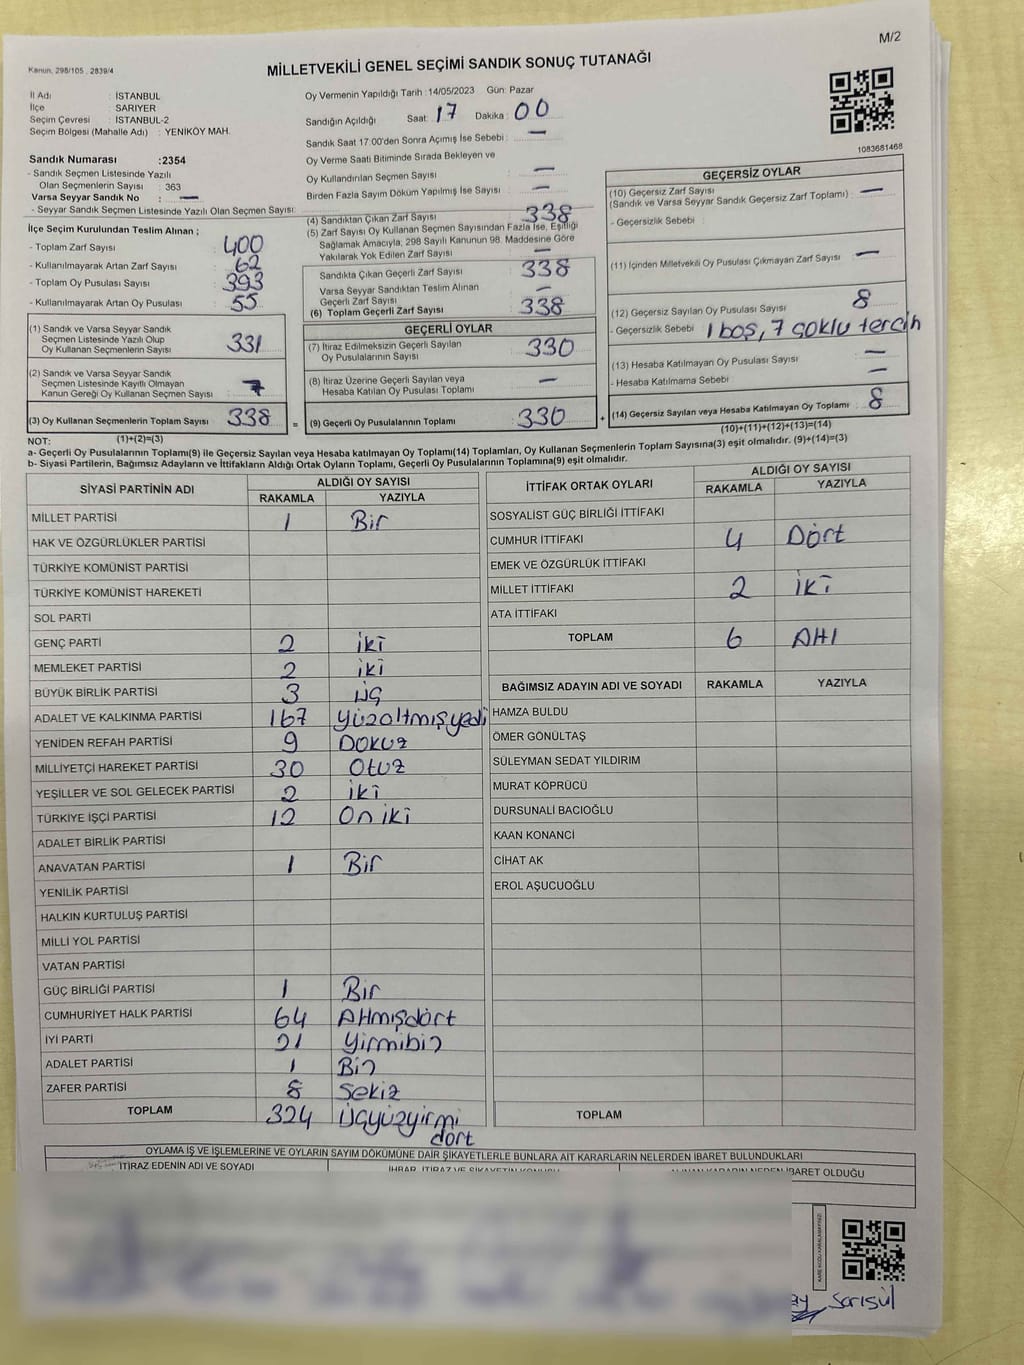 M/2
Kanun, 298/105 , 2839/4
MİLLETVEKİLİ GENEL SEÇİMİ SANDIK SONUÇ TUTANAĞI
İl Adı : İSTANBUL
İlçe : SARIYER
Seçim Çevresi : İSTANBUL-2
Seçim Bölgesi (Mahalle Adı) : YENİKÖY MAH.
Sandık Numarası :2354
- Sandık Seçmen Listesinde Yazılı
Olan Seçmenlerin Sayısı : 363
Varsa Seyyar Sandık No : —
- Seyyar Sandık Seçmen Listesinde Yazılı Olan Seçmen Sayısı:
İlçe Seçim Kurulundan Teslim Alınan ;
- Toplam Zarf Sayısı : 400
- Kullanılmayarak Artan Zarf Sayısı : 62
- Toplam Oy Pusulası Sayısı : 393
- Kullanılmayarak Artan Oy Pusulası : 55
(1) Sandık ve Varsa Seyyar Sandık
Seçmen Listesinde Yazılı Olup
Oy Kullanan Seçmenlerin Sayısı : 331
(2) Sandık ve Varsa Seyyar Sandık
Seçmen Listesinde Kayıtlı Olmayan
Kanun Gereği Oy Kullanan Seçmen Sayısı : 7
(3) Oy Kullanan Seçmenlerin Toplam Sayısı : 338
(1)+(2)=(3)
Oy Vermenin Yapıldığı Tarih :14/05/2023 Gün: Pazar
Sandığın Açıldığı Saat: 17 Dakika : 00
Sandık Saat 17:00'den Sonra Açımış İse Sebebi : —
Oy Verme Saati Bitiminde Sırada Bekleyen ve
Oy Kullandırılan Seçmen Sayısı : —
Birden Fazla Sayım Döküm Yapılmış İse Sayısı : —
(4) Sandıktan Çıkan Zarf Sayısı : 338
(5) Zarf Sayısı Oy Kullanan Seçmen Sayısından Fazla İse, Eşitliği
Sağlamak Amacıyla, 298 Sayılı Kanunun 98. Maddesine Göre
Yakılarak Yok Edilen Zarf Sayısı : —
Sandıkta Çıkan Geçerli Zarf Sayısı : 338
Varsa Seyyar Sandıktan Teslim Alınan
Geçerli Zarf Sayısı : —
(6) Toplam Geçerli Zarf Sayısı : 338
GEÇERLİ OYLAR
(7) İtiraz Edilmeksizin Geçerli Sayılan
Oy Pusulalarının Sayısı : 330
(8) İtiraz Üzerine Geçerli Sayılan veya
Hesaba Katılan Oy Pusulası Toplamı : —
= (9) Geçerli Oy Pusulalarının Toplamı : 330 +
1083681468
GEÇERSİZ OYLAR
(10) Geçersiz Zarf Sayısı
(Sandık ve Varsa Seyyar Sandık Geçersiz Zarf Toplamı) : —
- Geçersizlik Sebebi :
(11) İçinden Milletvekili Oy Pusulası Çıkmayan Zarf Sayısı : —
(12) Geçersiz Sayılan Oy Pusulası Sayısı : 8
- Geçersizlik Sebebi : 1 boş, 7 çoklu tercih
(13) Hesaba Katılmayan Oy Pusulası Sayısı : —
- Hesaba Katılmama Sebebi : —
(14) Geçersiz Sayılan veya Hesaba Katılmayan Oy Toplamı : 8
(10)+(11)+(12)+(13)=(14)
NOT:
a- Geçerli Oy Pusulalarının Toplamı(9) ile Geçersiz Sayılan veya Hesaba Katılmayan Oy Toplamı(14) Toplamları, Oy Kullanan Seçmenlerin Toplam Sayısına(3) eşit olmalıdır. (9)+(14)=(3)
b- Siyasi Partilerin, Bağımsız Adayların ve İttifakların Aldığı Ortak Oyların Toplamı, Geçerli Oy Pusulalarının Toplamına(9) eşit olmalıdır.
SİYASİ PARTİNİN ADI ALDIĞI OY SAYISI
RAKAMLA YAZIYLA
MİLLET PARTİSİ 1 Bir
HAK VE ÖZGÜRLÜKLER PARTİSİ
TÜRKİYE KOMÜNİST PARTİSİ
TÜRKİYE KOMÜNİST HAREKETİ
SOL PARTİ
GENÇ PARTİ 2 iki
MEMLEKET PARTİSİ 2 iki
BÜYÜK BİRLİK PARTİSİ 3 üç
ADALET VE KALKINMA PARTİSİ 167 Yüzaltmışyedi
YENİDEN REFAH PARTİSİ 9 Dokuz
MİLLİYETÇİ HAREKET PARTİSİ 30 Otuz
YEŞİLLER VE SOL GELECEK PARTİSİ 2 iki
TÜRKİYE İŞÇİ PARTİSİ 12 On iki
ADALET BİRLİK PARTİSİ
ANAVATAN PARTİSİ 1 Bir
YENİLİK PARTİSİ
HALKIN KURTULUŞ PARTİSİ
MİLLİ YOL PARTİSİ
VATAN PARTİSİ
GÜÇ BİRLİĞİ PARTİSİ 1 Bir
CUMHURİYET HALK PARTİSİ 64 Altmışdört
İYİ PARTİ 21 Yirmibir
ADALET PARTİSİ 1 Bir
ZAFER PARTİSİ 8 Sekiz
TOPLAM 324 Üçyüzyirmi
dört
İTTİFAK ORTAK OYLARI ALDIĞI OY SAYISI
RAKAMLA YAZIYLA
SOSYALİST GÜÇ BİRLİĞİ İTTİFAKI
CUMHUR İTTİFAKI 4 Dört
EMEK VE ÖZGÜRLÜK İTTİFAKI
MİLLET İTTİFAKI 2 iki
ATA İTTİFAKI
TOPLAM 6 Altı
BAĞIMSIZ ADAYIN ADI VE SOYADI RAKAMLA YAZIYLA
HAMZA BULDU
ÖMER GÖNÜLTAŞ
SÜLEYMAN SEDAT YILDIRIM
MURAT KÖPRÜCÜ
DURSUNALİ BACIOĞLU
KAAN KONANCİ
CİHAT AK
EROL AŞUCUOĞLU
TOPLAM
OYLAMA İŞ VE İŞLEMLERİNE VE OYLARIN SAYIM DÖKÜMÜNE DAİR ŞİKAYETLERLE BUNLARA AİT KARARLARIN NELERDEN İBARET BULUNDUKLARI
İTİRAZ EDENİN ADI VE SOYADI
İBARET OLDUĞU
Sarısül